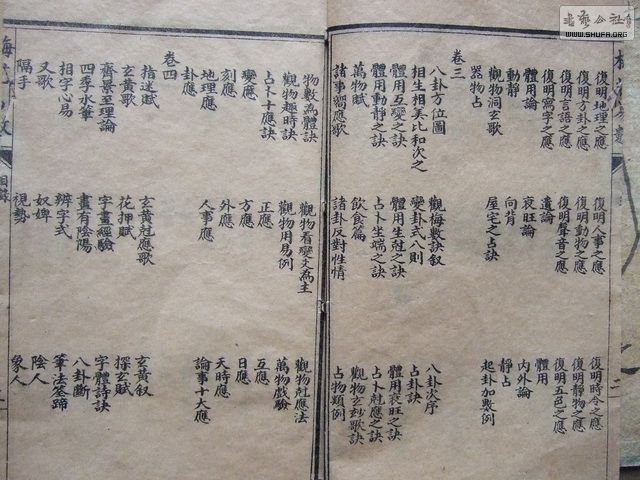 復明地理之應　復明人事之應　復明時令之應
復明方卦之應　復明動物之應　復明靜物之應
復明言語之應　復明聲音之應　復明五色之應
復明寫字之應　遺論　體用
體用論　衰旺論　內外論
動靜　向背　靜占
觀物洞玄歌　屋宅之占訣　起卦加數例
器物占
卷三
八卦方位圖　觀梅數訣叙　八卦次序
相生相美比和次之　變卦式八則　占卦訣
體用互變之訣　體用生尅之訣　體用衰旺之訣
體用動靜之訣　占卜坐端之訣　占卜尅應之訣
萬物賦　飲食篇　觀物玄妙歌訣
諸事響應歌　諸卦反對性情　占物類例
物數為體訣　觀物看變爻為主　觀物尅應法
觀物趣時訣　觀物用易例　萬物戲驗
占卜十應訣　正應　互應
變應　方應　日應
刻應　外應　天時應
地理應　人事應　論事十大應
卦應
卷四
指迷賦　玄黃尅應歌　玄黃叙
玄黃歌　花押賦　探玄賦
齊景至理論　字畫經驗　字體詩訣
四季水筆　畫有陰陽　八卦斷
相字心易　辨字式　筆法筌蹄
又歌　奴婢　陰人
隔手　視勢　象人
WWW.SHUFA.ORG